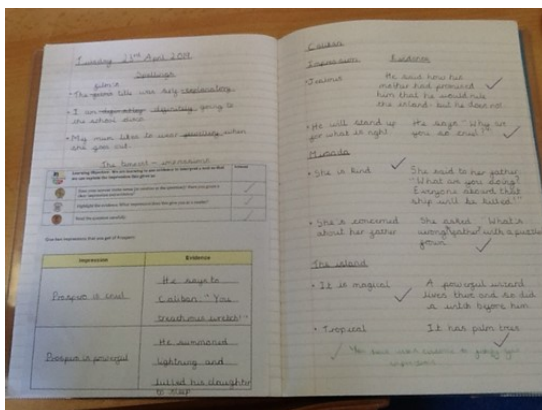 Tuesday 23rd April 2019
Spellings
film's
The title was very explanatory.
• I am definitely going to
the school disco.
• My mum likes to wear jewellery when
she goes out.
The Tempest - impressions
Impression Evidence
Prospero is cruel
He says to
Caliban "You
treacherous wretch!"
Prospero is powerful
He summoned
lightning and
lulled his daughter
to sleep
Caliban
Impression Evidence
• Jealous
He said how his
mother had promised
him that he would rule
the island - but he does not.
• He will stand up
for what is right
He says "Why are
you so cruel?"
Miranda
• She is kind
She said to her father
"What are you doing?
Everyone aboard that
ship will be killed!"
• She's concerned
about her father
She asked "What's
wrong father" with a puzzled
frown
The island
• It is magical
A powerful wizard
lives there and so did
a witch before him
• Tropical
It has palm trees